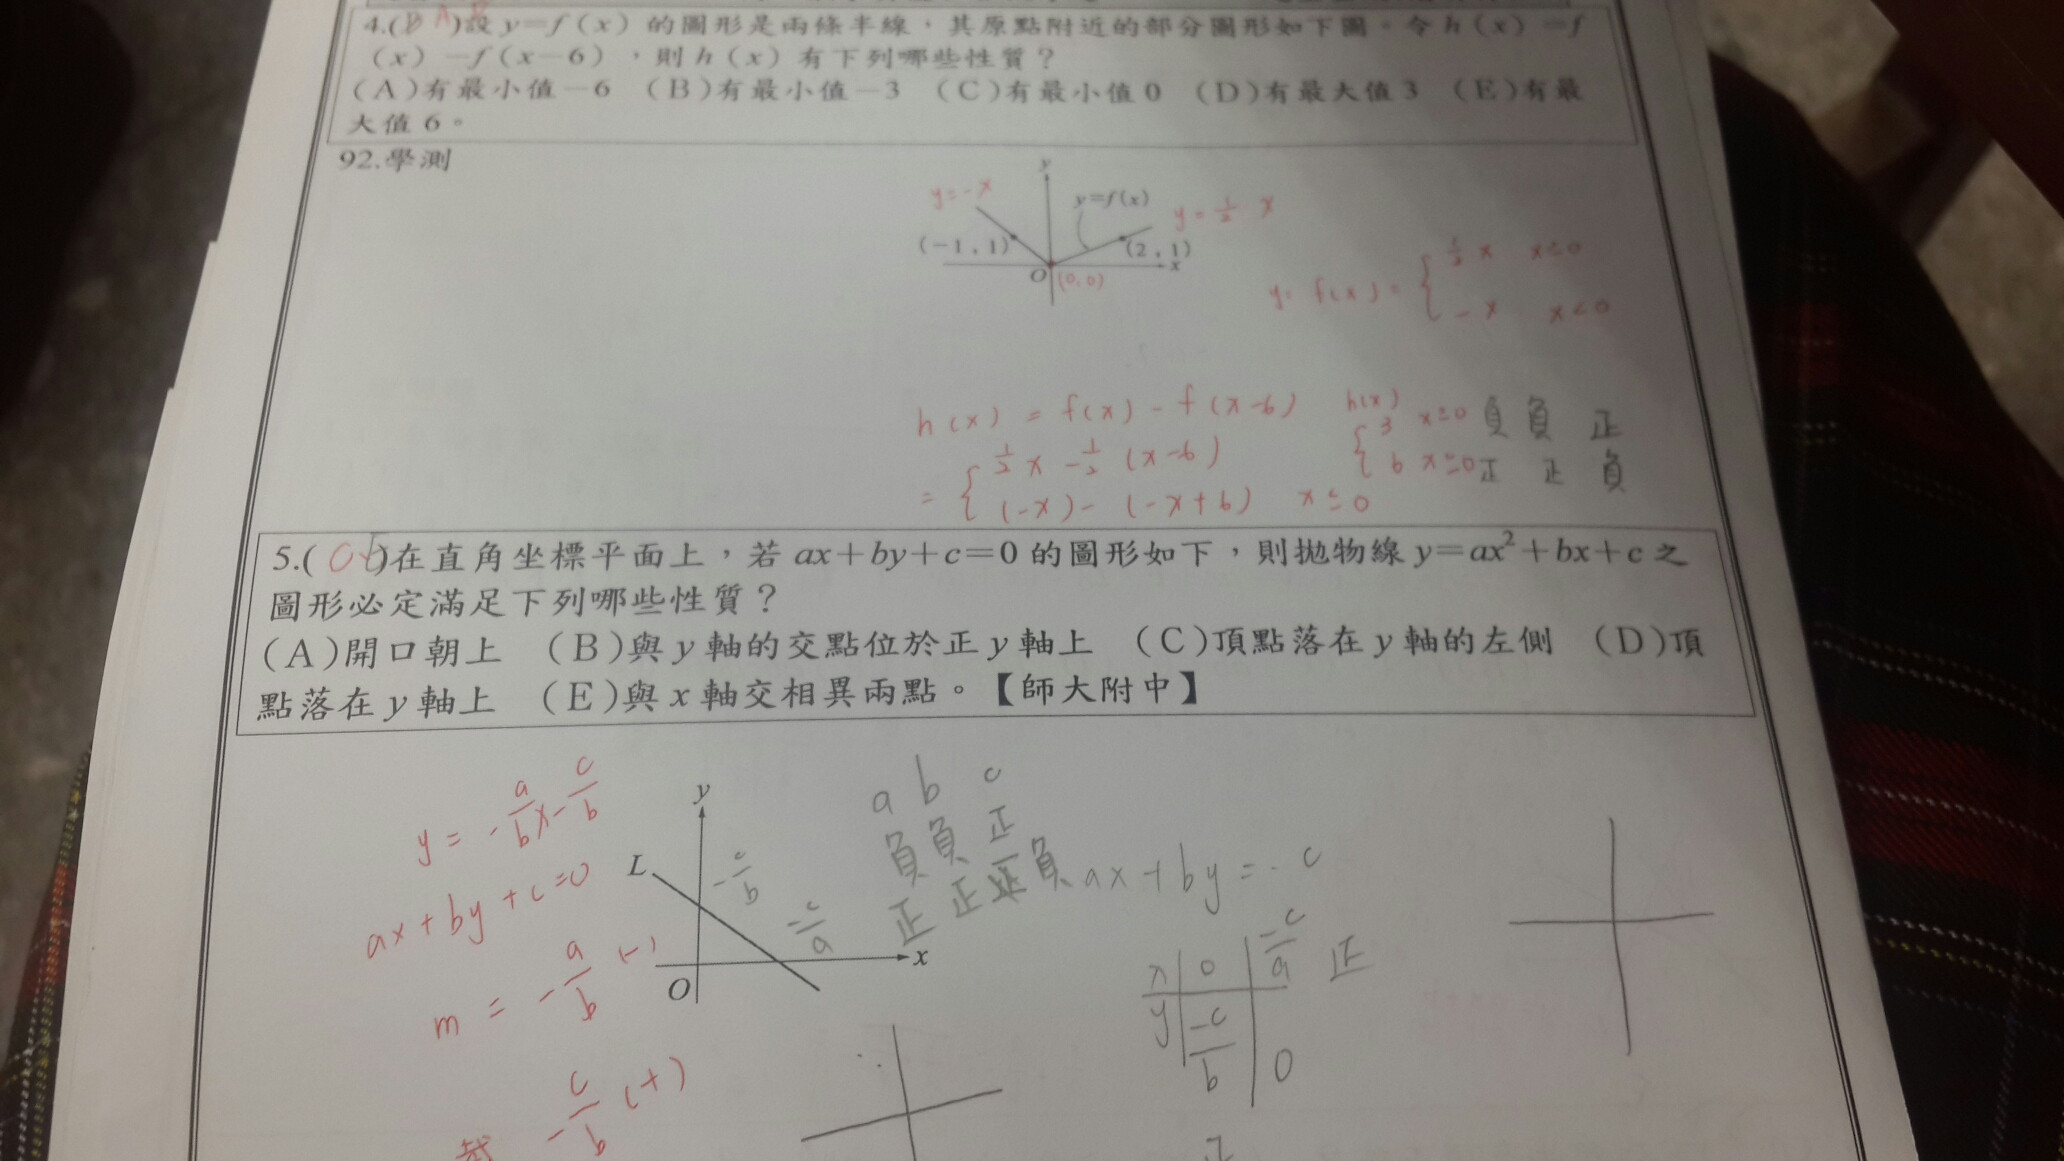 4.( )設 y=f(x) 的圖形是兩條半線，其原點附近的部分圖形如下圖。令 h(x)=f
(x)-f(x-6)，則 h(x) 有下列哪些性質？
(A)有最小值-6 (B)有最小值-3 (C)有最小值0 (D)有最大值3 (E)有最
大值6。
92.學測
y
y=-x
y=f(x)
y=1/2 x
(-1,1)
(2,1)
x
O
(0,0)
y= f(x)= { 1/2 x x≥0
-x x<0
h(x) = f(x) - f(x-6)
= { 1/2 x - 1/2 (x-6)
(-x) - (-x+6) x≤0
h(x)
{ 3 x≥0 負 負 正
6 x≥0 正 正 負
5.( )在直角坐標平面上，若 ax+by+c=0 的圖形如下，則拋物線 y=ax²+bx+c 之
圖形必定滿足下列哪些性質？
(A)開口朝上 (B)與 y 軸的交點位於正 y 軸上 (C)頂點落在 y 軸的左側 (D)頂
點落在 y 軸上 (E)與 x 軸交相異兩點。【師大附中】
y = -a/b x - c/b
ax+by+c=0
m = -a/b (-)
-c/b (+)
y
L
-c/b
-c/a
O
x
a b c
負 負 正
正 正 負
ax+by=-c
x 0 -c/a 正
y -c/b 0
正